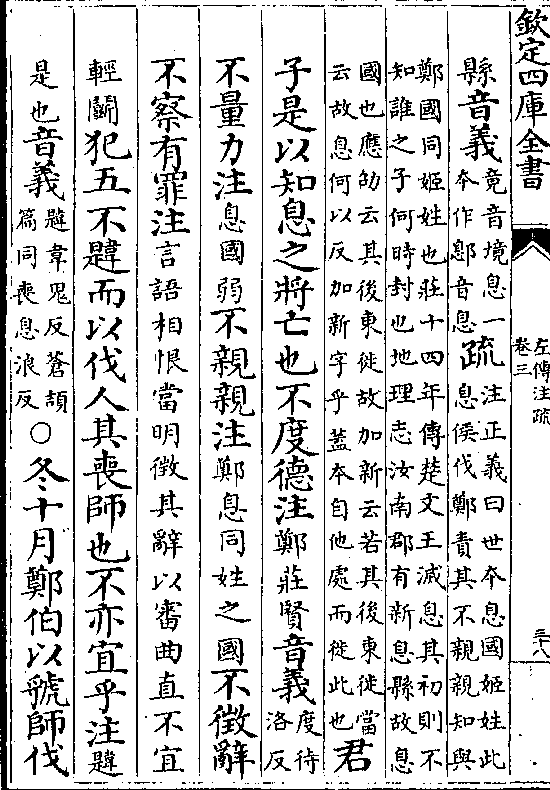 欽定四庫全書
左傳注疏
卷三
三八
縣音義竟音境息一本作鄎音息疏注正義曰世本息國姬姓此息侯伐鄭責其不親親知與
鄭國同姬姓也莊十四年傳楚文王滅息其初則不
知誰之子何時封也地理志汝南郡有新息縣故息
國也應劭云其後東徙故加新云若其後東徙當
云故息何以反加新字乎蓋本自他處而徙此也君
子是以知息之將亡也不度德注鄭莊賢音義度待洛反
不量力注息國弱不親親注鄭息同姓之國不徵辭
不察有罪注言語相恨當明徵其辭以審曲直不宜
輕鬬犯五不韙而以伐人其喪師也不亦宜乎注韙
是也音義韙韋鬼反蒼頡篇同喪息浪反○冬十月鄭伯以虢師伐